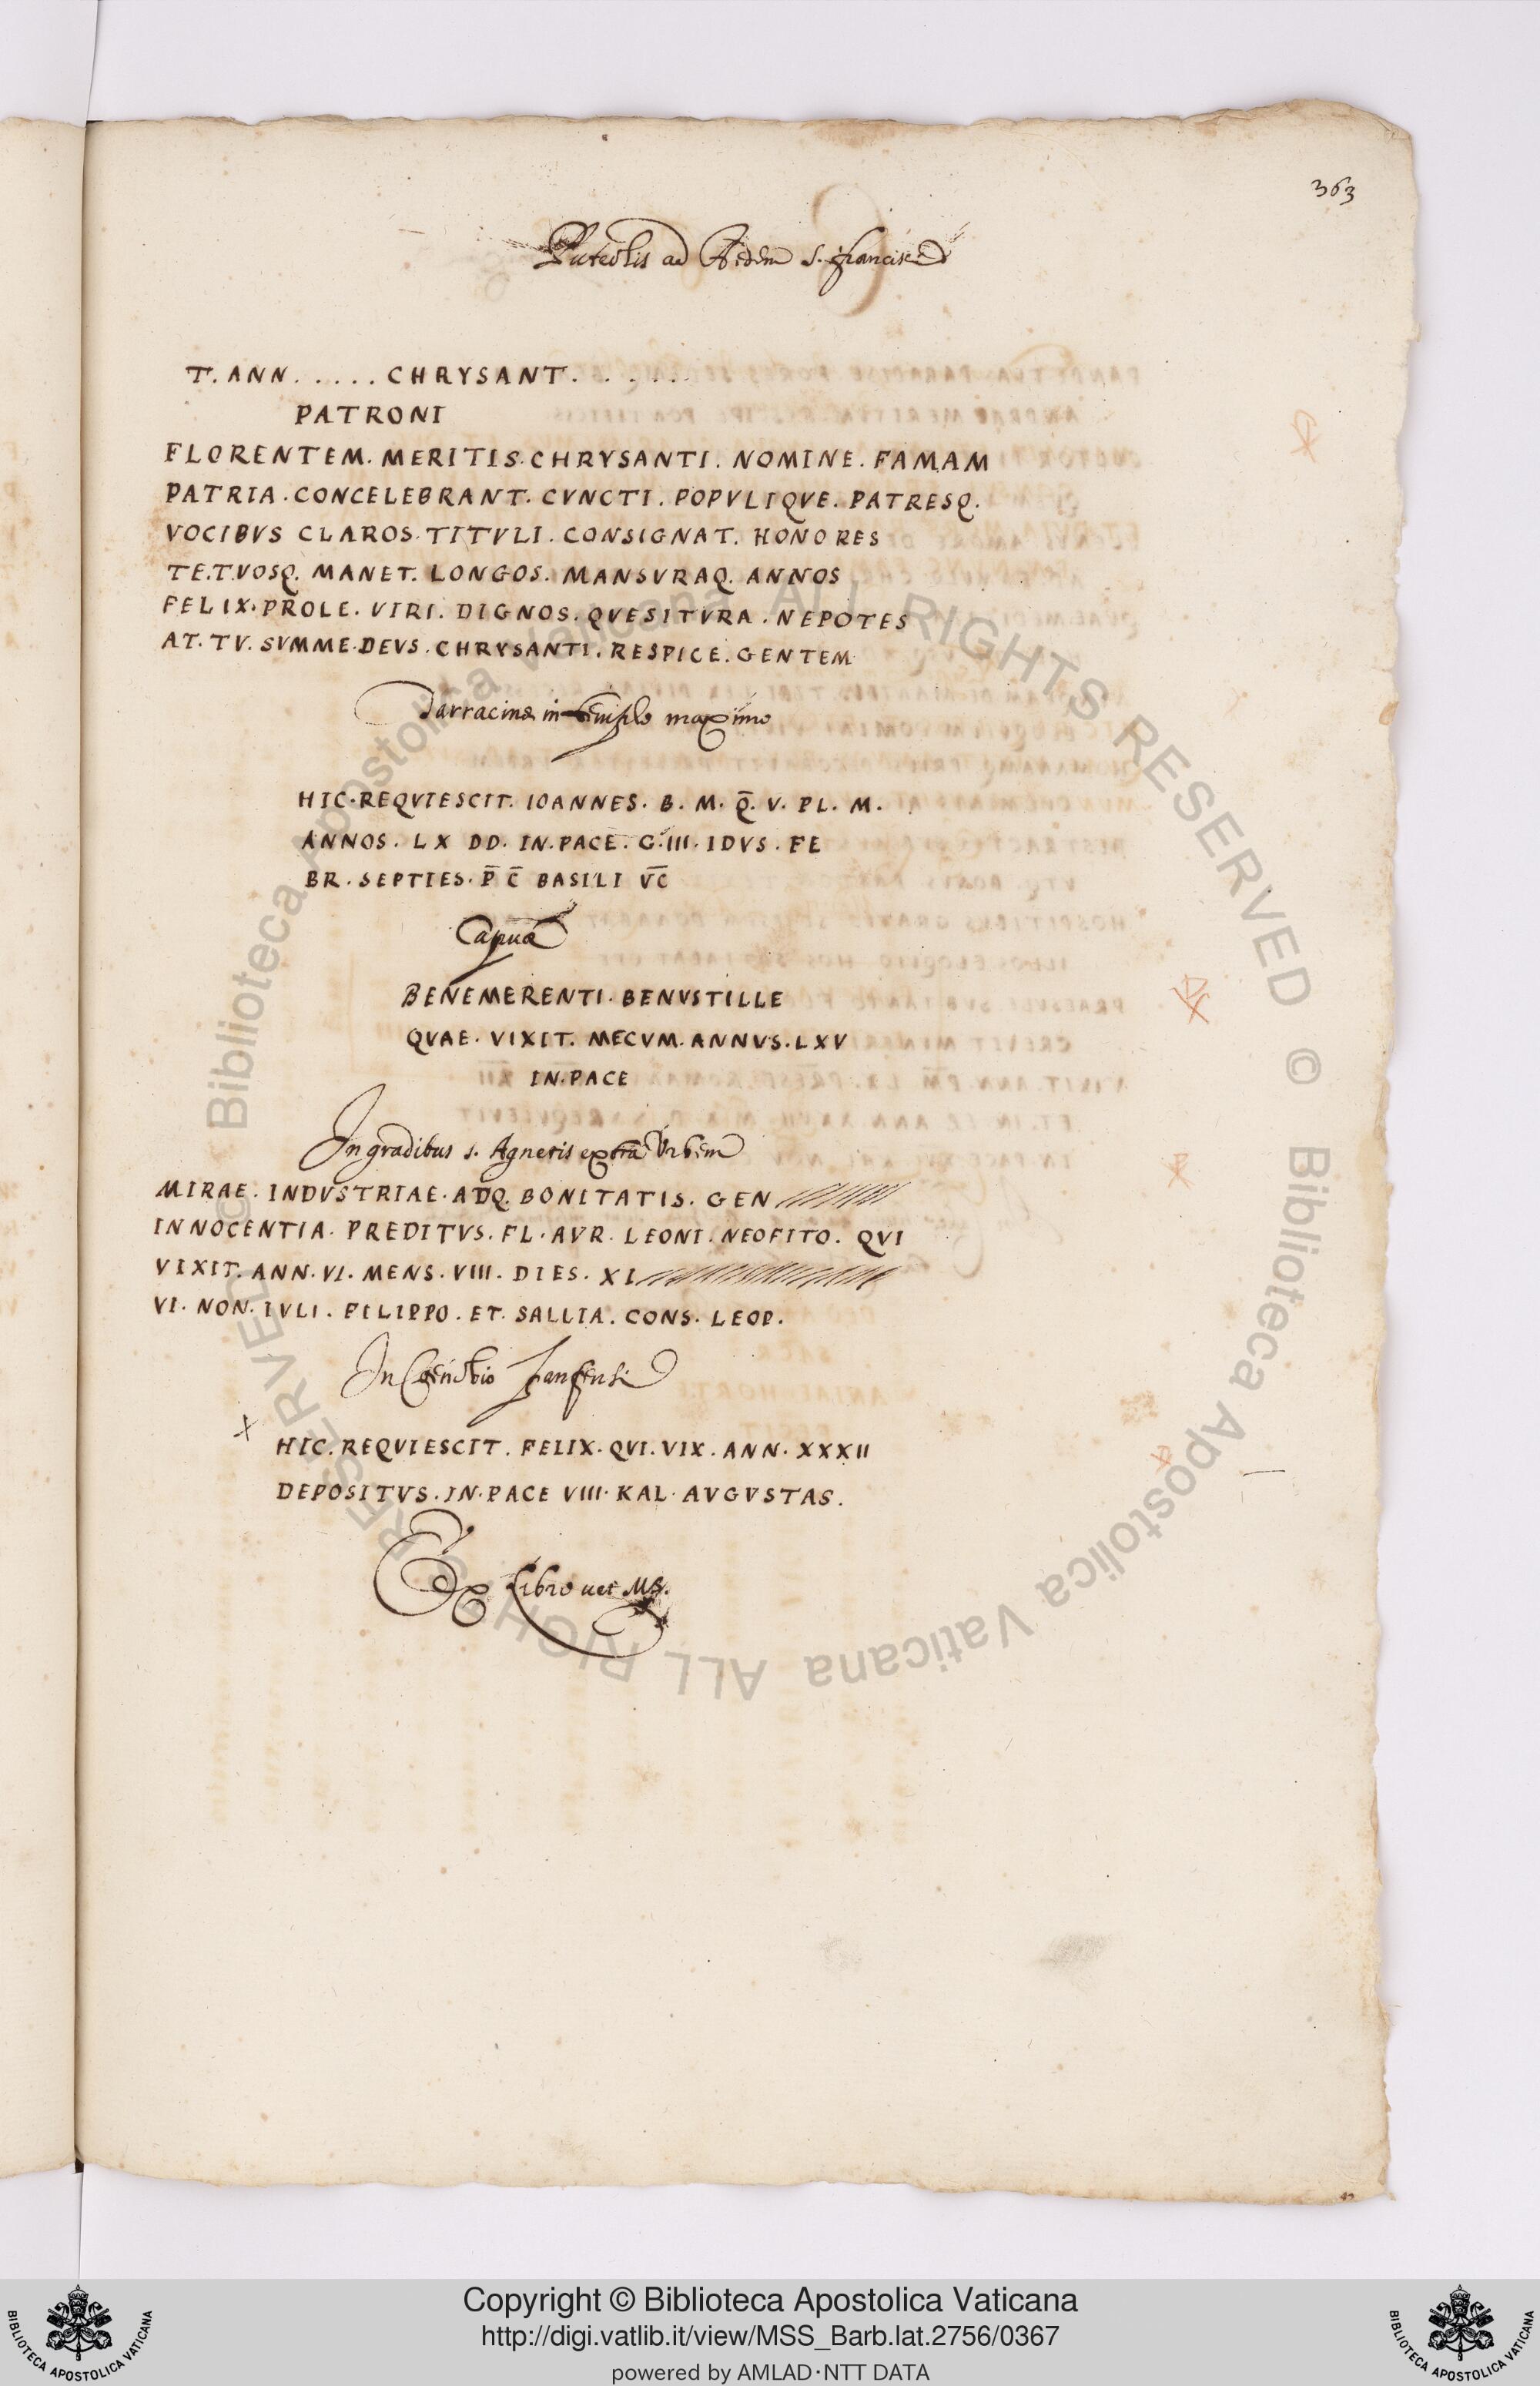 363
Puteolis ad Aedem S. Francisci
T. ANN. . . . . CHRYSANT. . . . . .
PATRONI
FLORENTEM. MERITIS. CHRYSANTI. NOMINE. FAMAM
PATRIA. CONCELEBRANT. CVNCTI. POPVLIQVE. PATRESQ.
VOCIBVS CLAROS. TITVLI. CONSIGNAT. HONORES
TE.T.VOSQ. MANET. LONGOS. MANSVRAQ. ANNOS
FELIX. PROLE. VIRI. DIGNOS. QVESITVRA. NEPOTES
AT. TV. SVMME. DEVS. CHRYSANTI. RESPICE. GENTEM
Tarracinae in templo maximo
HIC. REQVIESCIT. IOANNES. B. M. Q̄. V. PL. M.
ANNOS. LX DD. IN. PACE. G. III. IDVS. FE
BR. SEPTIES. P̄ C̄ BASILI V̄C̄
Capuae
BENEMERENTI. BENVSTILLE
QVAE. VIXIT. MECVM. ANNVS. LXV
IN. PACE
In gradibus s. Agnetis extra Vrbem
MIRAE. INDVSTRIAE. ADQ. BONITATIS. GEN
INNOCENTIA. PREDITVS. FL. AVR. LEONI. NEOFITO. QVI
VIXIT. ANN. VI. MENS. VIII. DIES. XI
VI. NON. IVLI. FILIPPO. ET. SALLIA. CONS. LEOP.
In Coenobio Farfensi
HIC. REQVIESCIT. FELIX. QVI. VIX. ANN. XXXII
DEPOSITVS. IN. PACE VIII. KAL. AVGVSTAS.
Ex Libro uet MS.
© Biblioteca Apostolica Vaticana ALL RIGHTS RESERVED © Biblioteca Apostolica Vaticana ALL RIGHTS RESERVED
BIBLIOTECA APOSTOLICA VATICANA
Copyright © Biblioteca Apostolica Vaticana
http://digi.vatlib.it/view/MSS_Barb.lat.2756/0367
powered by AMLAD·NTT DATA
BIBLIOTECA APOSTOLICA VATICANA